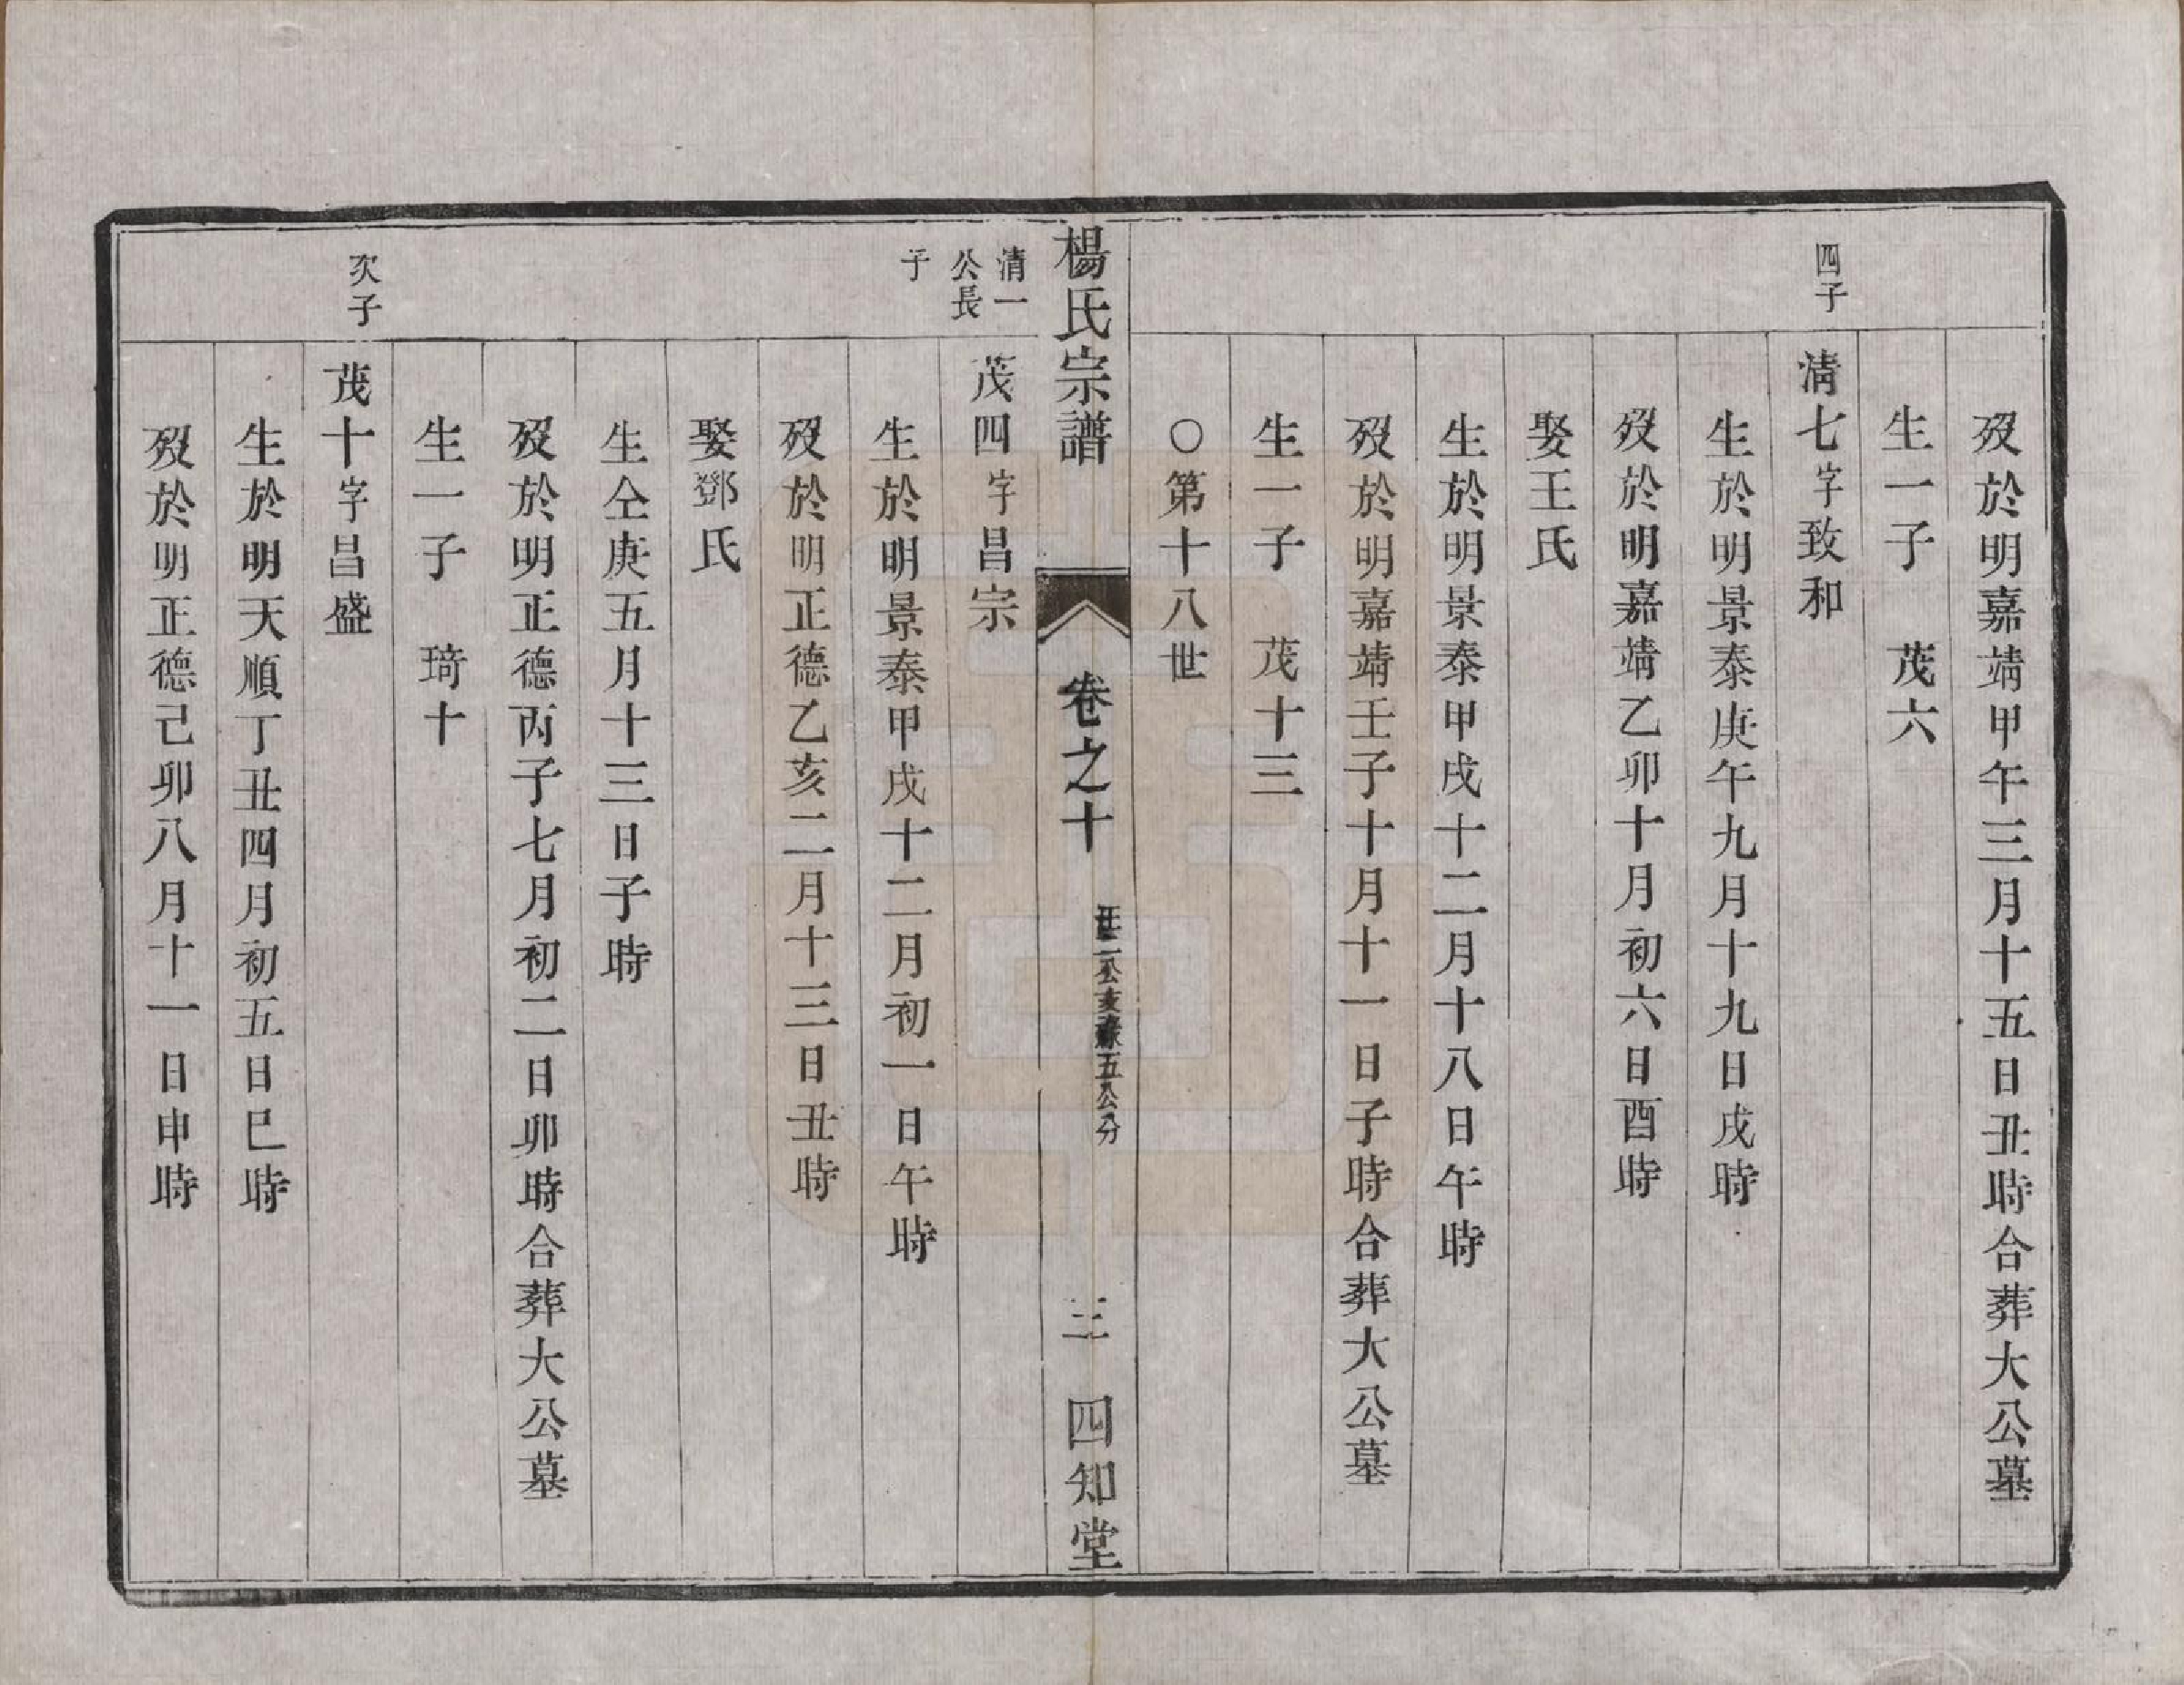 歿於明嘉靖甲午三月十五日丑時合葬大公墓
生一子　茂六
四子
清七字致和
生於明景泰庚午九月十九日戌時
歿於明嘉靖乙卯十月初六日酉時
娶王氏
生於明景泰甲戌十二月十八日午時
歿於明嘉靖壬子十月十一日子時合葬大公墓
生一子　茂十三
〇第十八世
楊氏宗譜　卷之十　公亥　五公分　三　四知堂
清一
公長
子
茂四字昌宗
生於明景泰甲戌十二月初一日午時
歿於明正德乙亥二月十三日丑時
娶鄧氏
生仝庚五月十三日子時
歿於明正德丙子七月初二日卯時合葬大公墓
生一子　琦十
次子
茂十字昌盛
生於明天順丁丑四月初五日巳時
歿於明正德己卯八月十一日申時